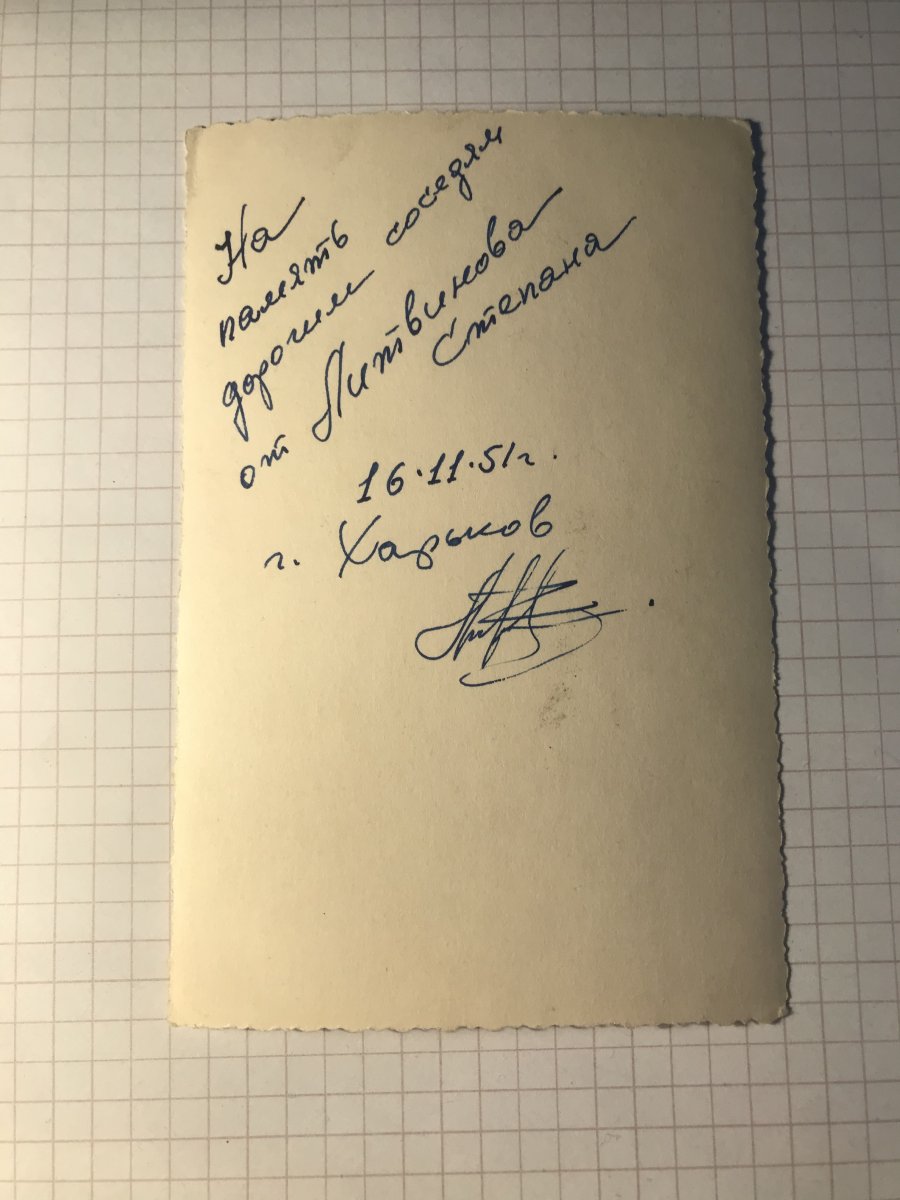 На
память
дорогим соседям
от Литвинова
Степана
16.11.51г.
г. Харьков